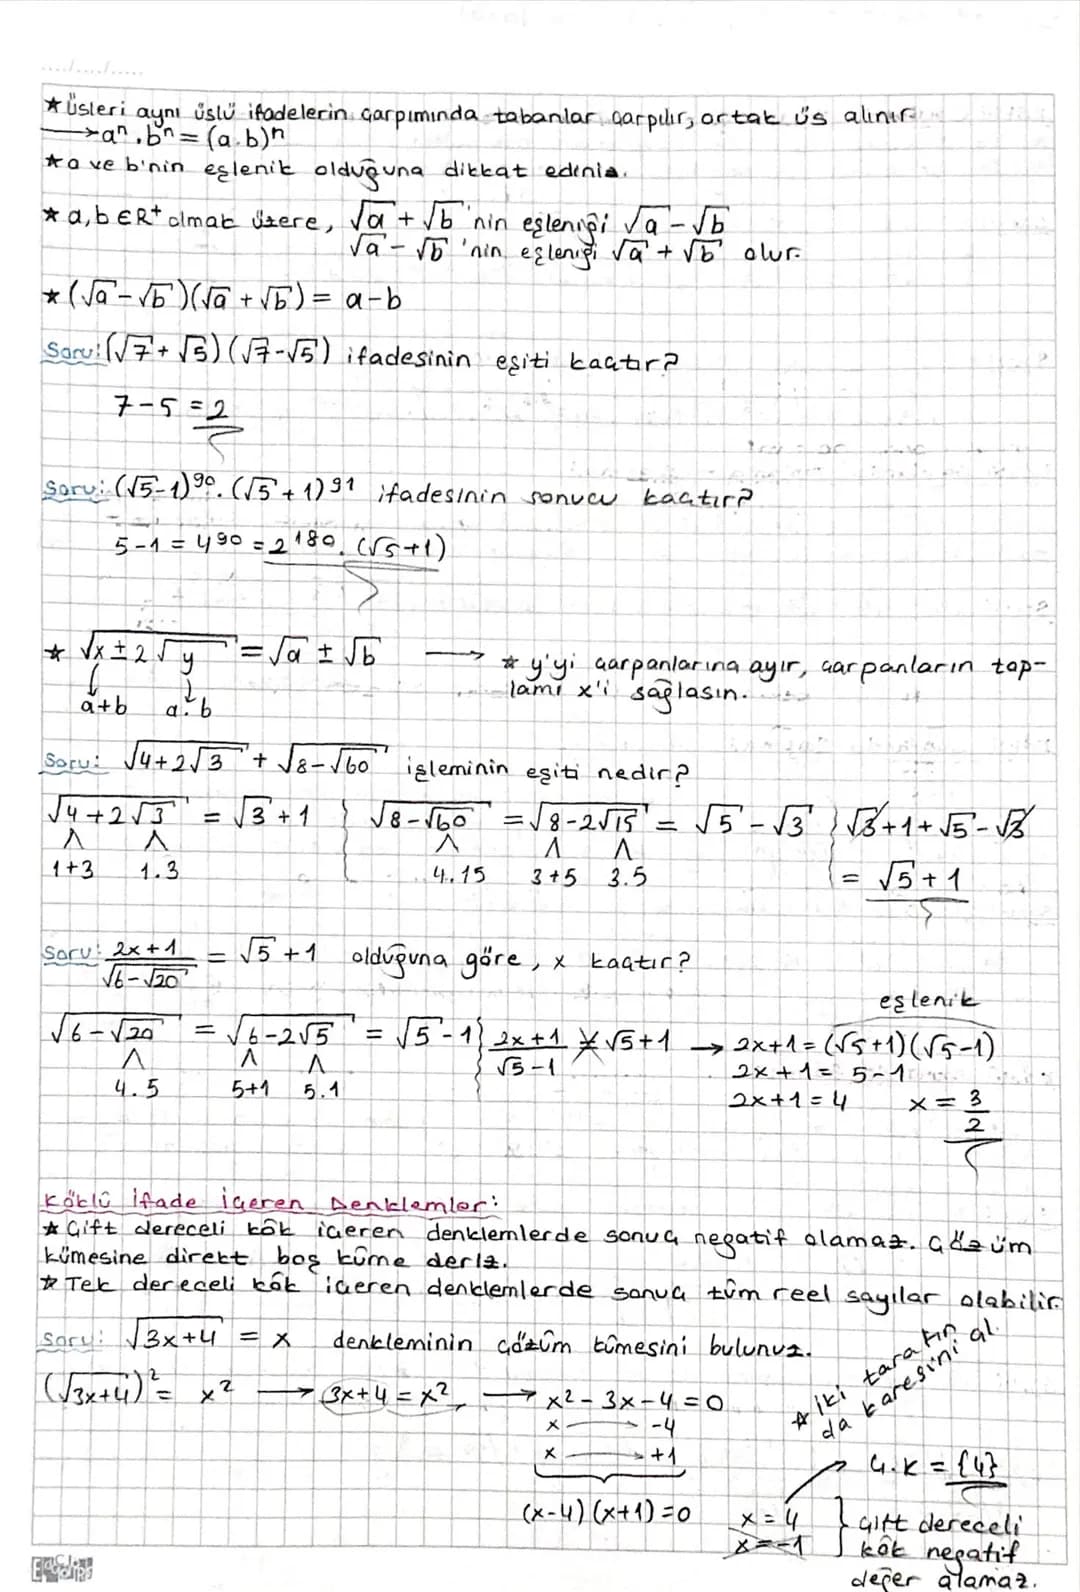 ★ Üsleri aynı üslü ifadelerin çarpımında tabanlar çarpılır, ortak üs alınır.
→ aⁿ.bⁿ = (a.b)ⁿ
★ a ve b'nin eşlenik olduğuna dikkat ediniz.
★ a,b ∈ R⁺ olmak üzere, √a + √b 'nin eşleniği √a - √b
√a - √b 'nin eşleniği √a + √b olur.
★ (√a - √b)(√a + √b) = a-b
Soru: (√7 + √5)(√7-√5) ifadesinin eşiti kaçtır?
7-5 = 2
Soru: (√5-1)⁹⁰.(√5+1)⁹¹ ifadesinin sonucu kaçtır?
5-1 = 4⁹⁰ = 2¹⁸⁰.(√5+1)
★ √(x ± 2√y) = √a ± √b → ★ y'yi çarpanlarına ayır, çarpanların top-
a+b a.b lamı x'i sağlasın.
Soru: √(4+2√3) + √(8-√60) işleminin eşiti nedir?
√(4+2√3) = √3 + 1 } √(8-√60) = √(8-2√15) = √5 - √3 } √3+1+√5-√3
1+3 1.3 4.15 3+5 3.5 = √5+1
Soru: (2x+1)/√(6-√20) = √5 + 1 olduğuna göre, x kaçtır?
eşlenik
√(6-√20) = √(6-2√5) = √5-1 } (2x+1)/(√5-1) = √5+1 → 2x+1 = (√5+1)(√5-1)
2x+1 = 5-1
4.5 5+1 5.1 2x+1 = 4 x = 3/2
Köklü İfade İçeren Denklemler:
★ Çift dereceli kök içeren denklemlerde sonuç negatif olamaz. Çözüm
kümesine direkt boş küme deriz.
★ Tek dereceli kök içeren denklemlerde sonuç tüm reel sayılar olabilir.
Soru: √(3x+4) = x denkleminin çözüm kümesini bulunuz.
★ iki tarafın
da karesini al.
(√(3x+4))² = x² → 3x+4 = x² → x² - 3x - 4 = 0
x -4
x +1
Ç.K = {4}
(x-4)(x+1)=0 x = 4 } çift dereceli
x = -1 kök negatif
değer alamaz.